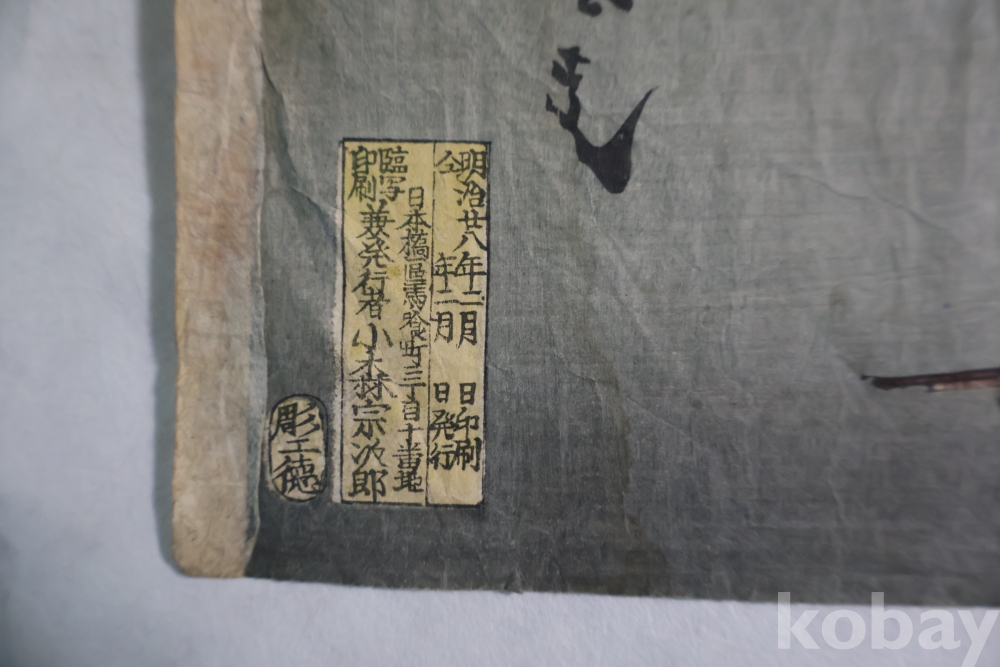 明治廿八年二月 日印刷
仝 年二月 日発行
日本橋區馬喰町三丁目十番地
臨写
印刷
兼発行者小林宗次郎
彫工徳
kobay